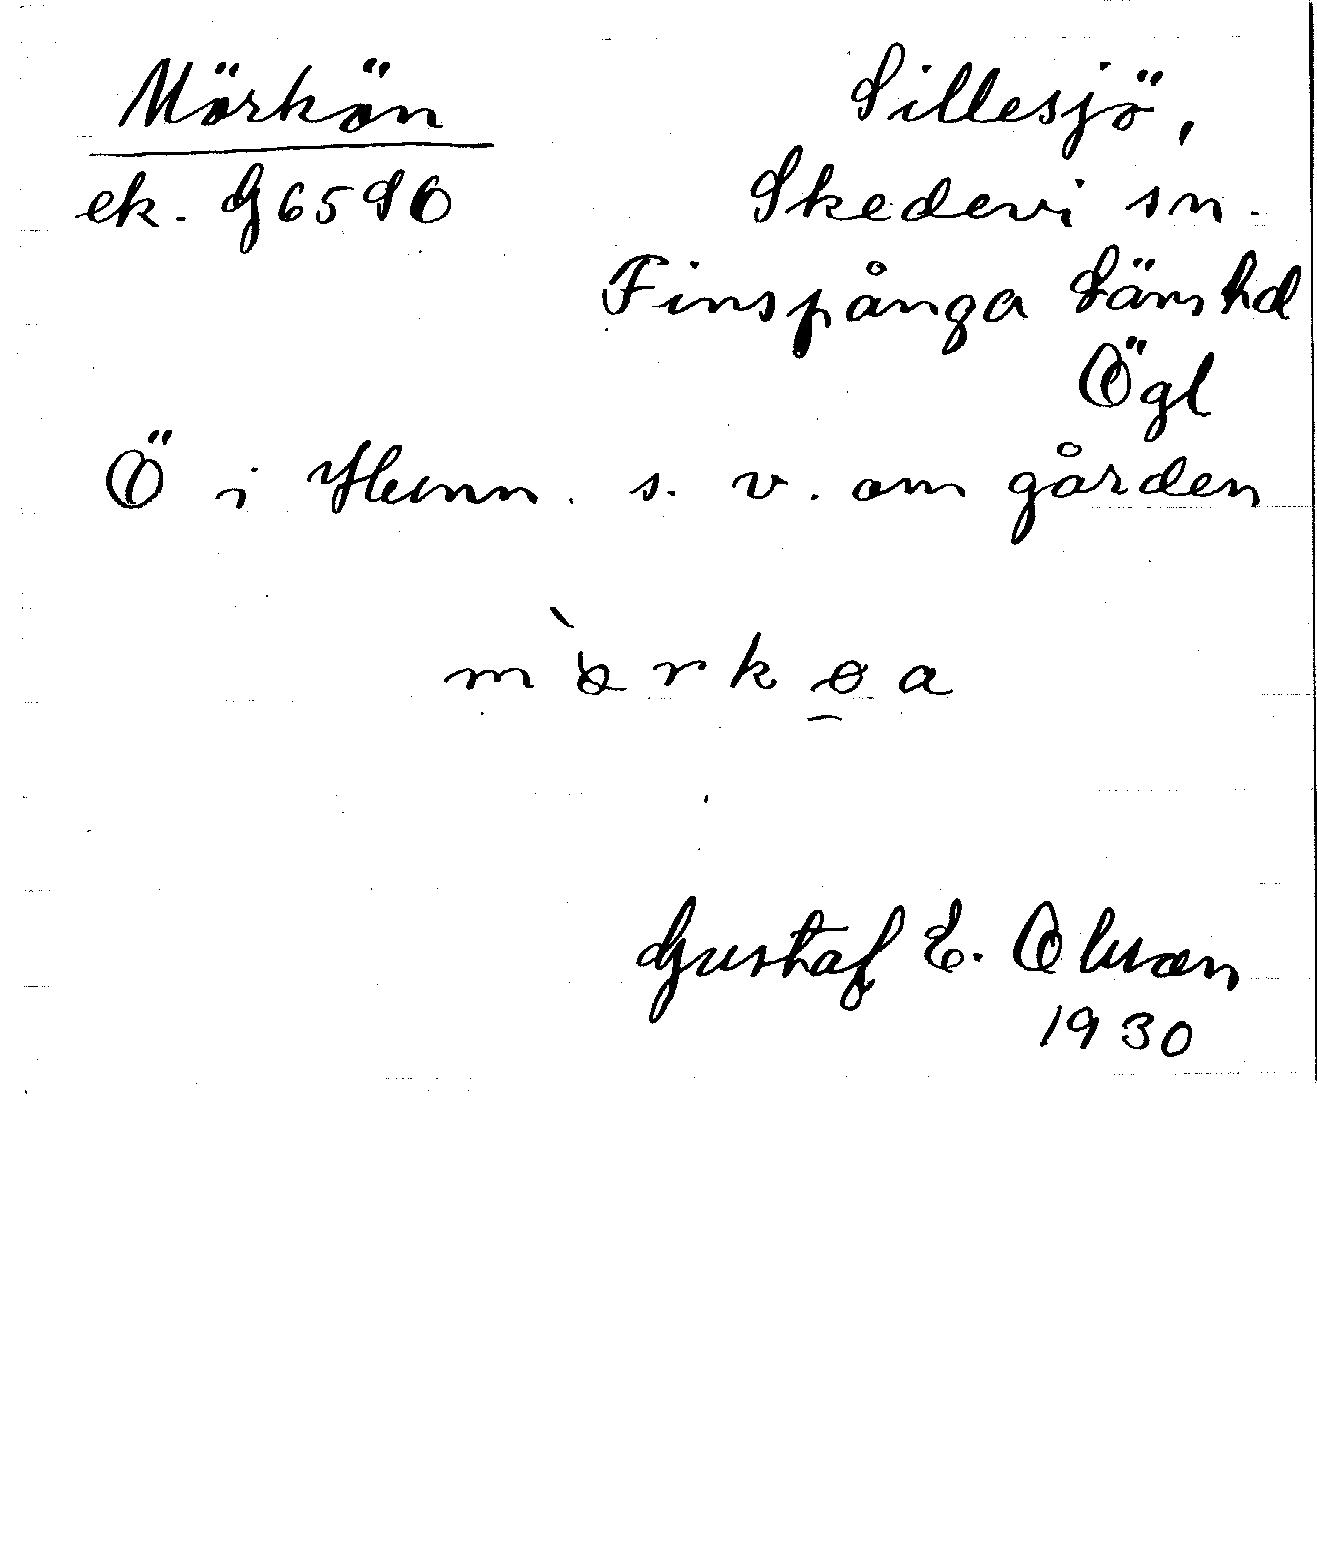 Mörkön
ek. G65SÖ
Sillesjö,
Skedevi sn.
Finspånga Läns hd
Ögl
Ö i Hunn. s. v. om gården
m ö̀ r k ø a
Gustaf E. Olsson
1930